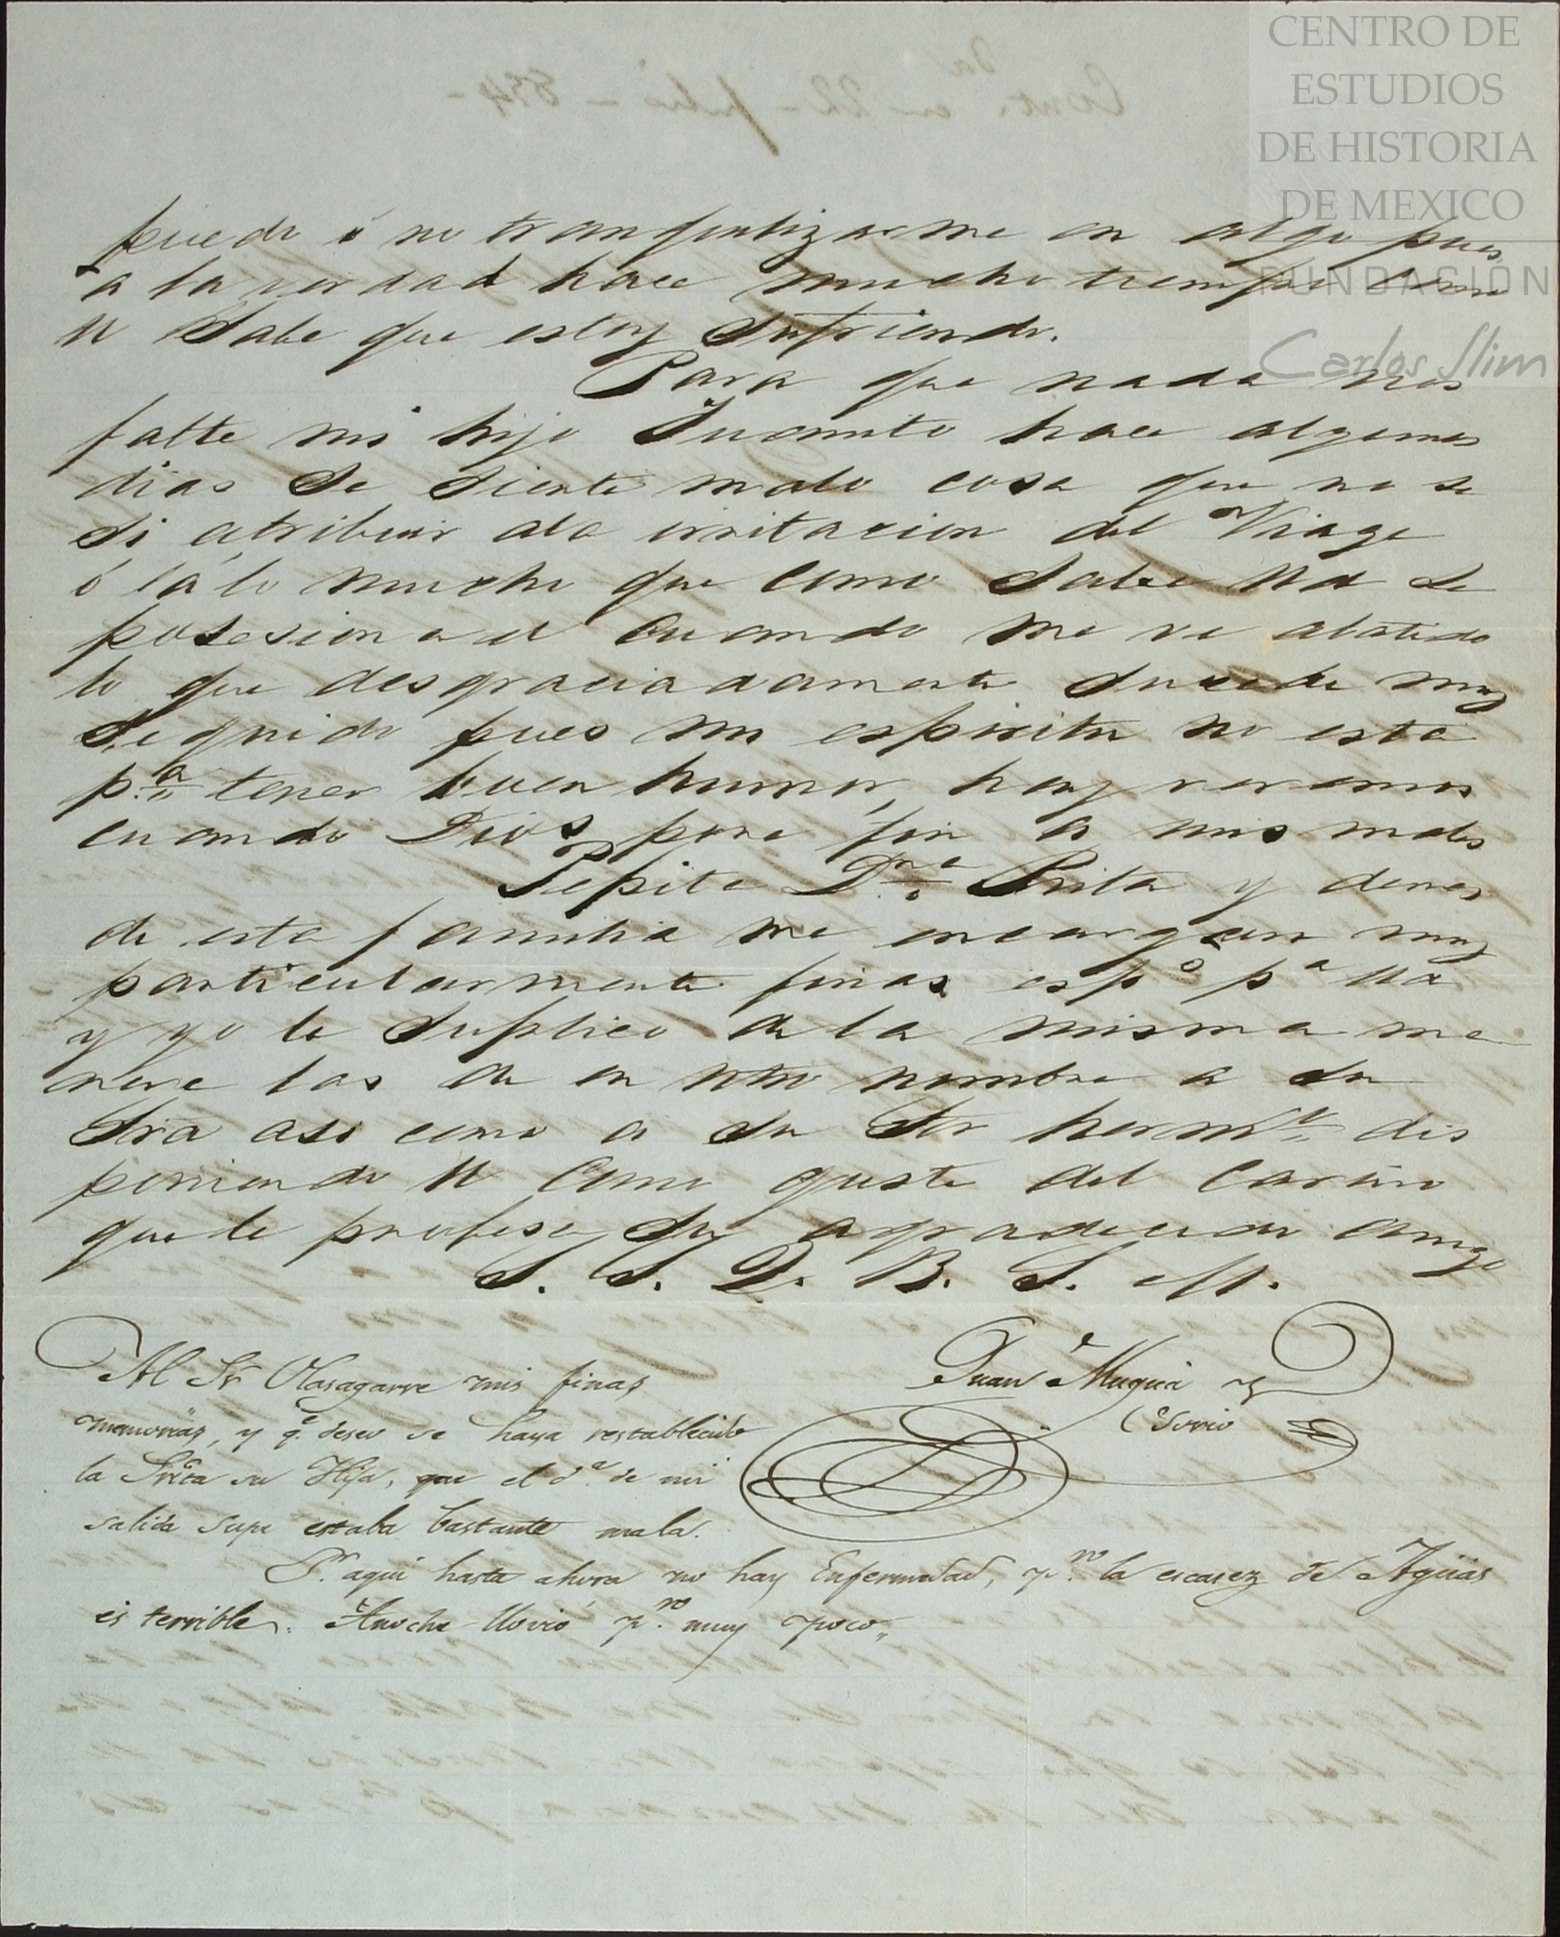 CENTRO DE
ESTUDIOS
DE HISTORIA
DE MEXICO
FUNDACIÓN
Carlos Slim
puedo ó no tranquilizarme en algo pues
a la verdad hace mucho tiempo como
U sabe que estoy sufriendo.
Para que nada nos
falte mi hijo Juanito hace algunos
dias se siente malo cosa que no se
si atribuir ala irritacion del Viage
ó a lo mucho que como sabe Ud se
posesiona el cuando me ve abatido
lo que desgraciadamente sucede muy
seguido pues mi espiritu no esta
p.ª tener buen humor, hay veremos
cuando Dios pone fin a mis males
Pepita D.ña Rita y demas
de esta familia me encargan muy
particularmente finas esp.s p.a Ud
y yo le suplico de la misma ma
nera las de en mio nombre a su
Sra asi como a su Sor herm.o dis
poniendo U como guste del cariño
que le profesa su agradecido amigo
S. S. Q. B. S. M.
Juan Mugica y
Osorio
Al Sr Olasagarre mis finas
memorias, y q.e deseo se haya restablecido
la Srita su Hija, que el d.a de mi
salida supe estaba bastante mala.
P.r aqui hasta ahora no hay Enfermedad, p.ro la escasez de Aguas
es terrible. Anoche llovió p.ro muy poco.,